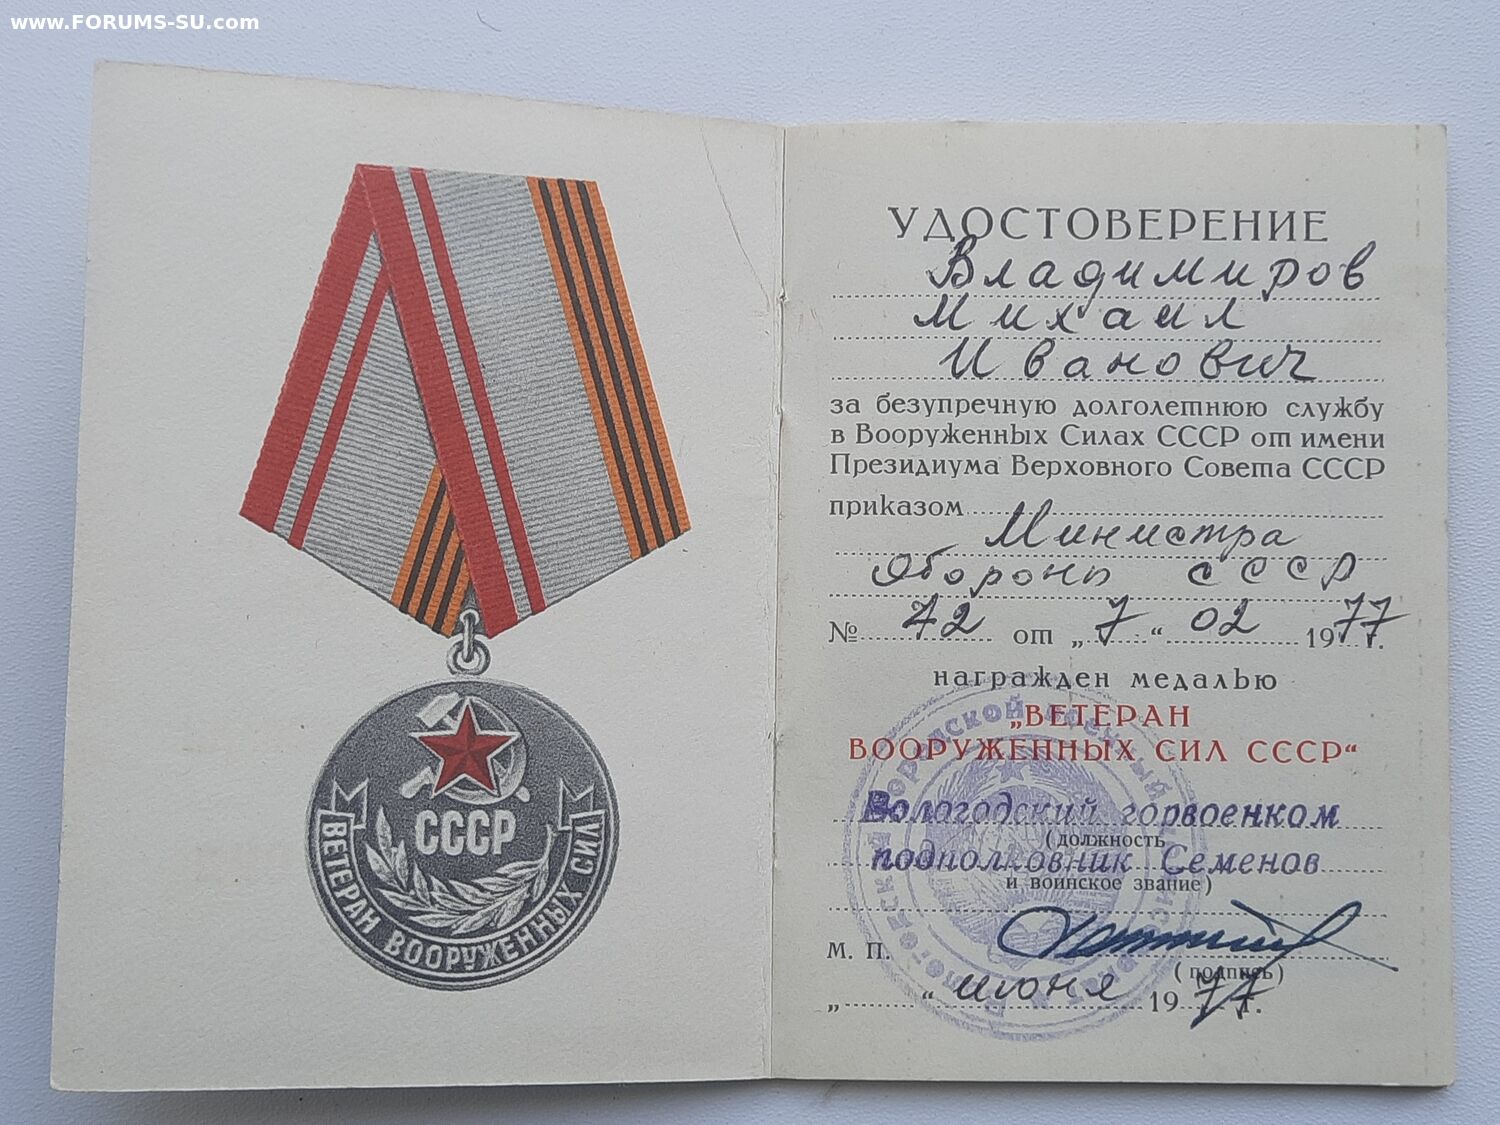 www.FORUMS-SU.com
СССР
ВЕТЕРАН ВООРУЖЕННЫХ СИЛ
УДОСТОВЕРЕНИЕ
Владимиров
Михаил
Иванович
за безупречную долголетнюю службу
в Вооруженных Силах СССР от имени
Президиума Верховного Совета СССР
приказом
Министра
Обороны СССР
№ 42 от „7“ 02 1977 г.
награжден медалью
„ВЕТЕРАН
ВООРУЖЕННЫХ СИЛ СССР“
Вологодский горвоенком
(должность
подполковник Семенов
и воинское звание)
М. П.
(подпись)
„ “ июня 1977 г.